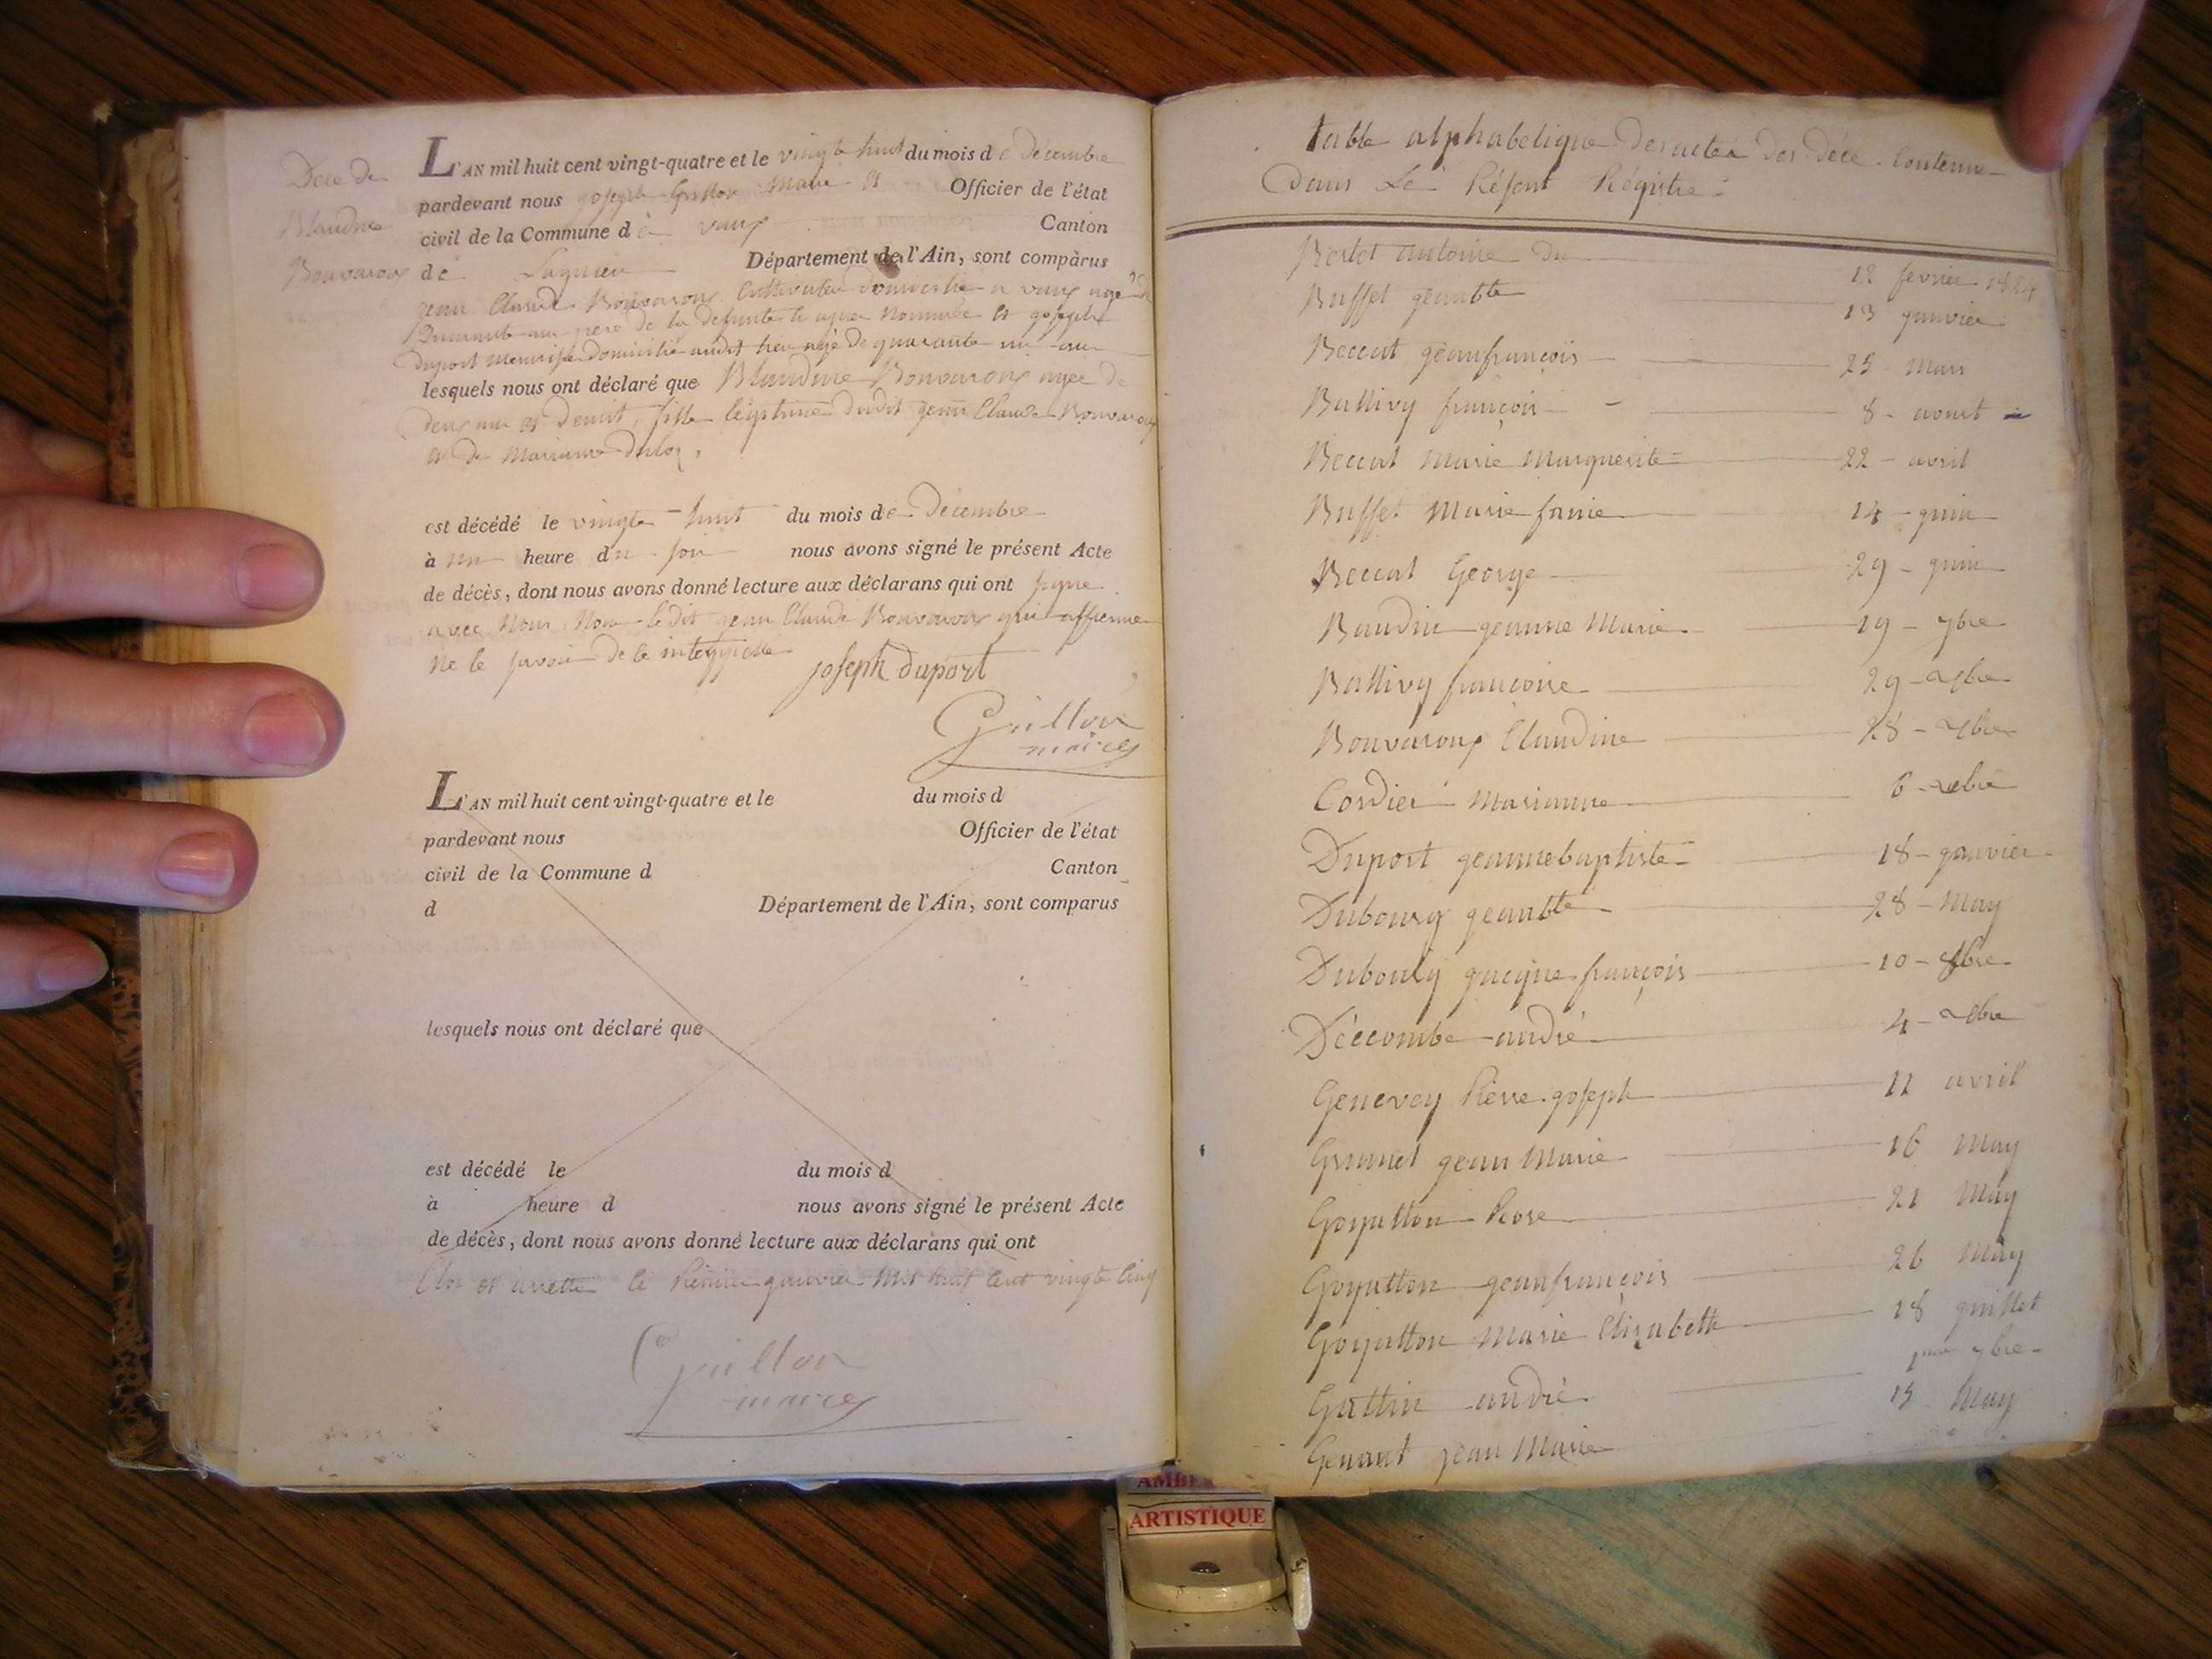 Déce de
Blandine
Bonvarong
L'AN mil huit cent vingt-quatre et le vingte huit du mois de décembre
pardevant nous goseph Guillon Maire et Officier de l'état
civil de la Commune de vaux Canton
de Lagnieu Département de l'Ain, sont comparus
jean Claude Bonvarong Cultivateur domicilié a vaux agé de
quarante ans pere de la defunte ci apres nommée et goseph
duport menuisier domicilié audit lieu agé de quarante un ans
lesquels nous ont déclaré que Blandine Bonvarong agee de
deux ans et demit, fille legitime dudit jean Claude Bonvarong
et de Marianne
est décédé le vingte huit du mois de Décembre
à un heure du soir nous avons signé le présent Acte
de décès, dont nous avons donné lecture aux déclarans qui ont signe
avec Nous Non ledit jean Claude Bonvarong qui affirme
ne le savoir de ce
joseph duport
Guillon
maire
L'AN mil huit cent vingt-quatre et le du mois d
pardevant nous Officier de l'état
civil de la Commune d Canton
d Département de l'Ain, sont comparus
lesquels nous ont déclaré que
est décédé le du mois d
à heure d nous avons signé le présent Acte
de décès, dont nous avons donné lecture aux déclarans qui ont
Clos et arretté le Premier ganvier mil huit cent vingte cinq
Guillon
maire
table alphabetique des actes des déce Contenu
dans Le Présent Régistre
Bertet antoine du 12 fevrier 1824
Buffet geanbte 13 ganvier
Beccat geanfrançois 25 Mars
Ballivy françois 8 aoust
Beccat Marie Marguerite 22 avril
Buffet Marie fanie 14 guin
Beccat George 29 guin
Baudin geanne Marie 19 7bre
Ballivy francoise 29
Bonvarong Claudine 28
Cordier Marianne 6
Duport geannebaptiste 18 ganvier
Dubourg geanbte 28 May
Dubourg gacque françois 10 8bre
Décombe andré 4
Genevey Pierre goseph 11 avril
Grumet gean Marie 16 May
Goyatton Rose 21 May
Goyatton geanfrançois 26 May
Goyatton Marie Elizabeth 18 guillet
Gattin andré 1er 7bre
Genaut jean Marie 15 May
AMBE
ARTISTIQUE